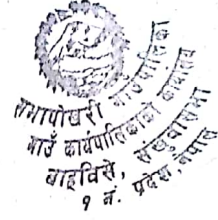 सभापोखरी गाउँपालिका
गाउँ कार्यपालिकाको कार्यालय
बाह्रविसे, संखुवासभा
१ नं. प्रदेश, नेपाल